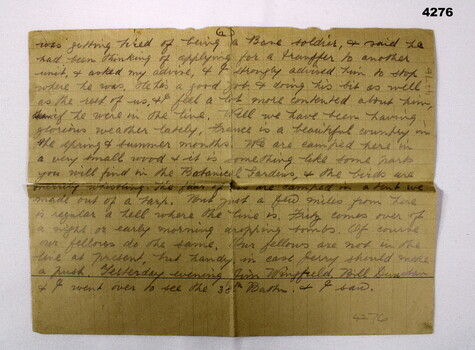 4276
6
was getting tired of being a Base soldier, & said he
had been thinking of applying for a transfer to another
unit, & asked my advise, & I strongly advised him to stop
where he was. He has a good job & doing his bit as well
as the rest of us, & I feel a lot more contented about him,
if he were in the line. Well we have been having
glorious weather lately, France is a beautiful country in
the spring & summer months. We are camped here in
a very small wood & it is something like some parks
you will find in the Botanical Gardens, & the birds are
merrily whistling. The four of us are camped in a tent we
made out of a tarp. But just a few miles from here
is regular a hell where the line is. Fritz comes over of
a night or early morning dropping bombs. Of course
our fellows do the same. Our fellows are not in the
line at present, but handy, in case Jerry should make
a push. Yesterday evening Jim Wingfield, Bill
& I went over to see the 38th Battn. & I saw.
4276